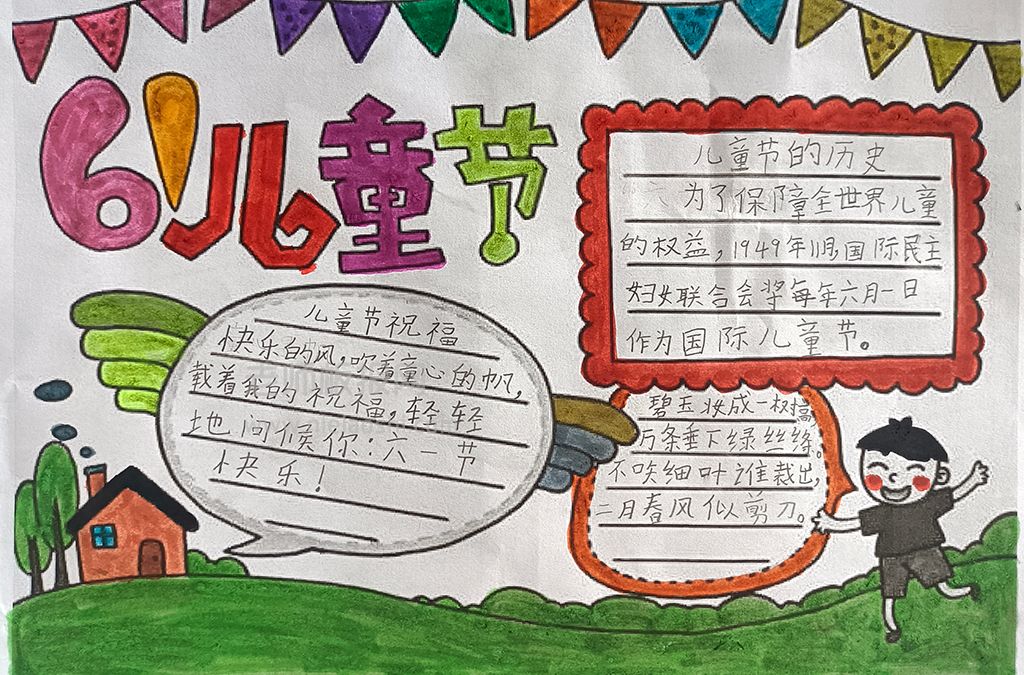 61儿童节
儿童节的历史
为了保障全世界儿童
的权益，1949年11月国际民主
妇女联合会将每年六月一日
作为国际儿童节。
儿童节祝福
快乐的风，吹着童心的帆，
载着我的祝福，轻轻
地问候你：六一节
快乐！
碧玉妆成一树高
万条垂下绿丝绦。
不知细叶谁裁出，
二月春风似剪刀。